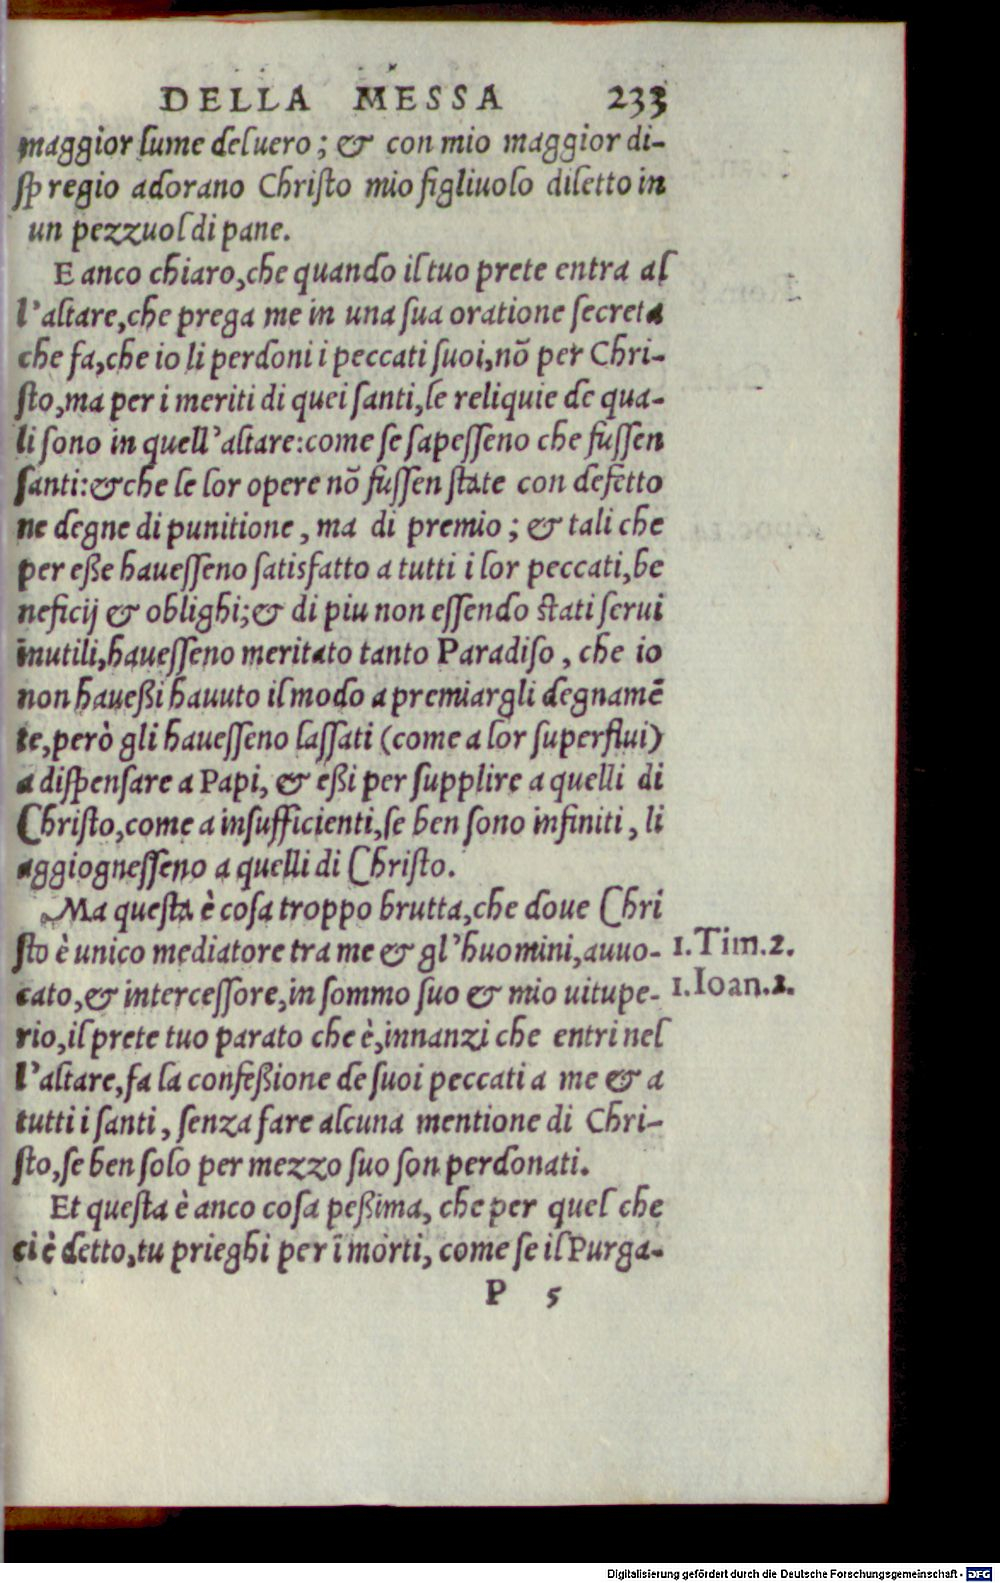 DELLA MESSA 233
maggior lume del uero; & con mio maggior di-
ſpregio adorano Chriſto mio figliuolo diletto in
un pezzuol di pane.
E anco chiaro, che quando il tuo prete entra al
l'altare, che prega me in una ſua oratione ſecreta
che fa, che io li perdoni i peccati ſuoi, nō per Chri-
ſto, ma per i meriti di quei ſanti, le reliquie de qua-
li ſono in quell'altare: come ſe ſapeſſeno che fuſſen
ſanti: & che le lor opere nō fuſſen ſtate con defetto
ne degne di punitione, ma di premio; & tali che
per eße haueſſeno ſatisfatto a tutti i lor peccati, be
neficij & oblighi; & di piu non eſſendo ſtati ſerui
inutili, haueſſeno meritato tanto Paradiſo, che io
non haueßi hauuto il modo a premiargli degnamē
te, però gli haueſſeno laſſati (come a lor ſuperflui)
a diſpenſare a Papi, & eßi per ſupplire a quelli di
Chriſto, come a inſufficienti, ſe ben ſono infiniti, li
aggiogneſſeno a quelli di Chriſto.
Ma queſta è coſa troppo brutta, che doue Chri
ſto è unico mediatore tra me & gl'huomini, auuo- 1.Tim.2.
cato, & interceſſore, in ſommo ſuo & mio uitupe- 1.Ioan.2.
rio, il prete tuo parato che è, innanzi che entri nel
l'altare, fa la confeßione de ſuoi peccati a me & a
tutti i ſanti, ſenza fare alcuna mentione di Chri-
ſto, ſe ben ſolo per mezzo ſuo ſon perdonati.
Et queſta è anco coſa peßima, che per quel che
ci è detto, tu prieghi per i morti, come ſe il Purga-
P 5
Digitalisierung gefördert durch die Deutsche Forschungsgemeinschaft - DFG